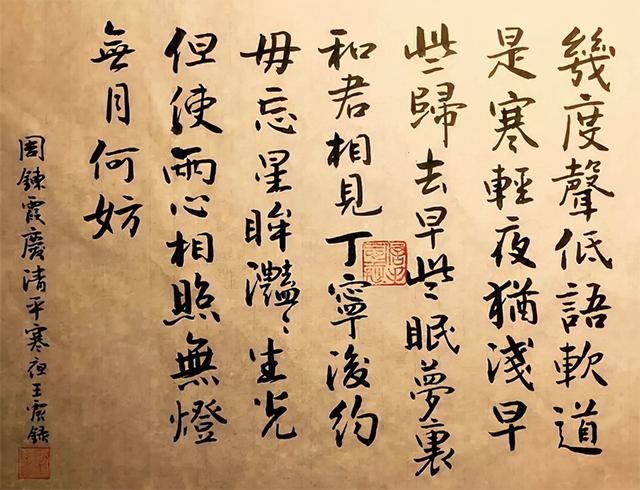 幾度聲低語軟道
是寒輕夜猶淺早
些歸去早些眠夢裏
和君相見丁寧後約
毋忘星眸灩〻生光
但使兩心相照無燈
無月何妨
周鍊霞慶清平寒夜王震錄